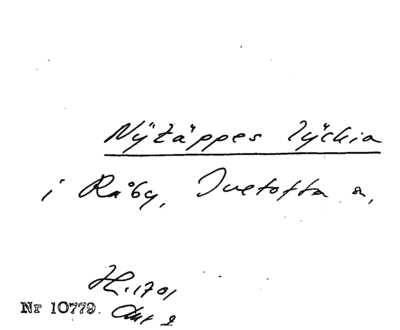 Nÿtäppes lÿckia
i Råby, Tvetofta s,
H. 1701
Nr 10779.